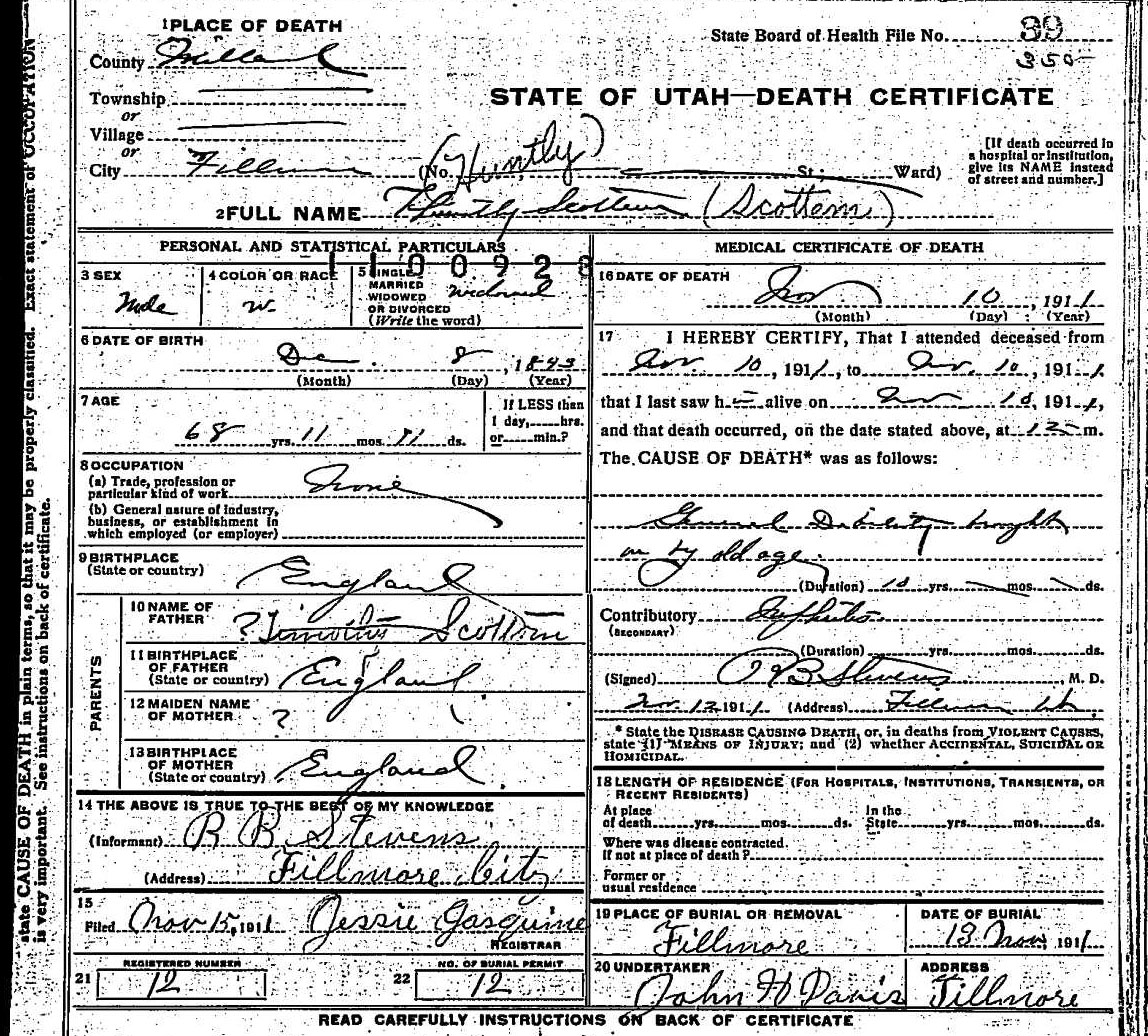 1 PLACE OF DEATH
County Millard
Township
or
Village
or
City Fillmore (No. St; Ward)
(Huntly)
[If death occurred in
a hospital or institution,
give its NAME instead
of street and number.]
State Board of Health File No. 99
350
STATE OF UTAH—DEATH CERTIFICATE
2 FULL NAME Huntly Scottem (Scottem)
PERSONAL AND STATISTICAL PARTICULARS
1100928
3 SEX
Male
4 COLOR OR RACE
W.
5 SINGLE
MARRIED
WIDOWED
OR DIVORCED
(Write the word)
widowed
6 DATE OF BIRTH
Dec. 8, 1843
(Month) (Day) (Year)
7 AGE
68 yrs. 11 mos. 11 ds.
If LESS than
1 day,......hrs.
or......min.?
8 OCCUPATION
(a) Trade, profession or
particular kind of work
None
(b) General nature of industry,
business, or establishment in
which employed (or employer)
9 BIRTHPLACE
(State or country)
England
PARENTS
10 NAME OF
FATHER
? Scottem
11 BIRTHPLACE
OF FATHER
(State or country)
England
12 MAIDEN NAME
OF MOTHER
?
13 BIRTHPLACE
OF MOTHER
(State or country)
England
14 THE ABOVE IS TRUE TO THE BEST OF MY KNOWLEDGE
(Informant) R B Stevens
(Address) Fillmore City
15
Filed Nov 15, 1911 Jessie Gasquine
REGISTRAR
REGISTERED NUMBER
21 12
NO. OF BURIAL PERMIT
22 12
MEDICAL CERTIFICATE OF DEATH
16 DATE OF DEATH
Nov 10, 1911
(Month) (Day) (Year)
17 I HEREBY CERTIFY, That I attended deceased from
Nov. 10, 1911, to Nov. 10, 1911
that I last saw h alive on Nov 10, 1911,
and that death occurred, on the date stated above, at 12 m.
The CAUSE OF DEATH* was as follows:
General Debility brought
on by old age.
(Duration) 10 yrs. mos. ds.
Contributory Nephritis
(SECONDARY)
(Duration) yrs. mos. ds.
(Signed) R B Stevens, M. D.
Nov. 12 1911 (Address) Fillmore Ut.
* State the DISEASE CAUSING DEATH, or, in deaths from VIOLENT CAUSES,
state (1) MEANS OF INJURY; and (2) whether ACCIDENTAL, SUICIDAL OR
HOMICIDAL.
18 LENGTH OF RESIDENCE (FOR HOSPITALS, INSTITUTIONS, TRANSIENTS, OR
RECENT RESIDENTS)
At place
of death yrs. mos. ds.
In the
State yrs. mos. ds.
Where was disease contracted.
If not at place of death?
Former or
usual residence
19 PLACE OF BURIAL OR REMOVAL
Fillmore
DATE OF BURIAL
13 Nov, 1911
20 UNDERTAKER
John H Davis
ADDRESS
Fillmore
READ CAREFULLY INSTRUCTIONS ON BACK OF CERTIFICATE
state CAUSE OF DEATH in plain terms, so that it may be properly classified. Exact statement of OCCUPATION
is very important. See instructions on back of certificate.